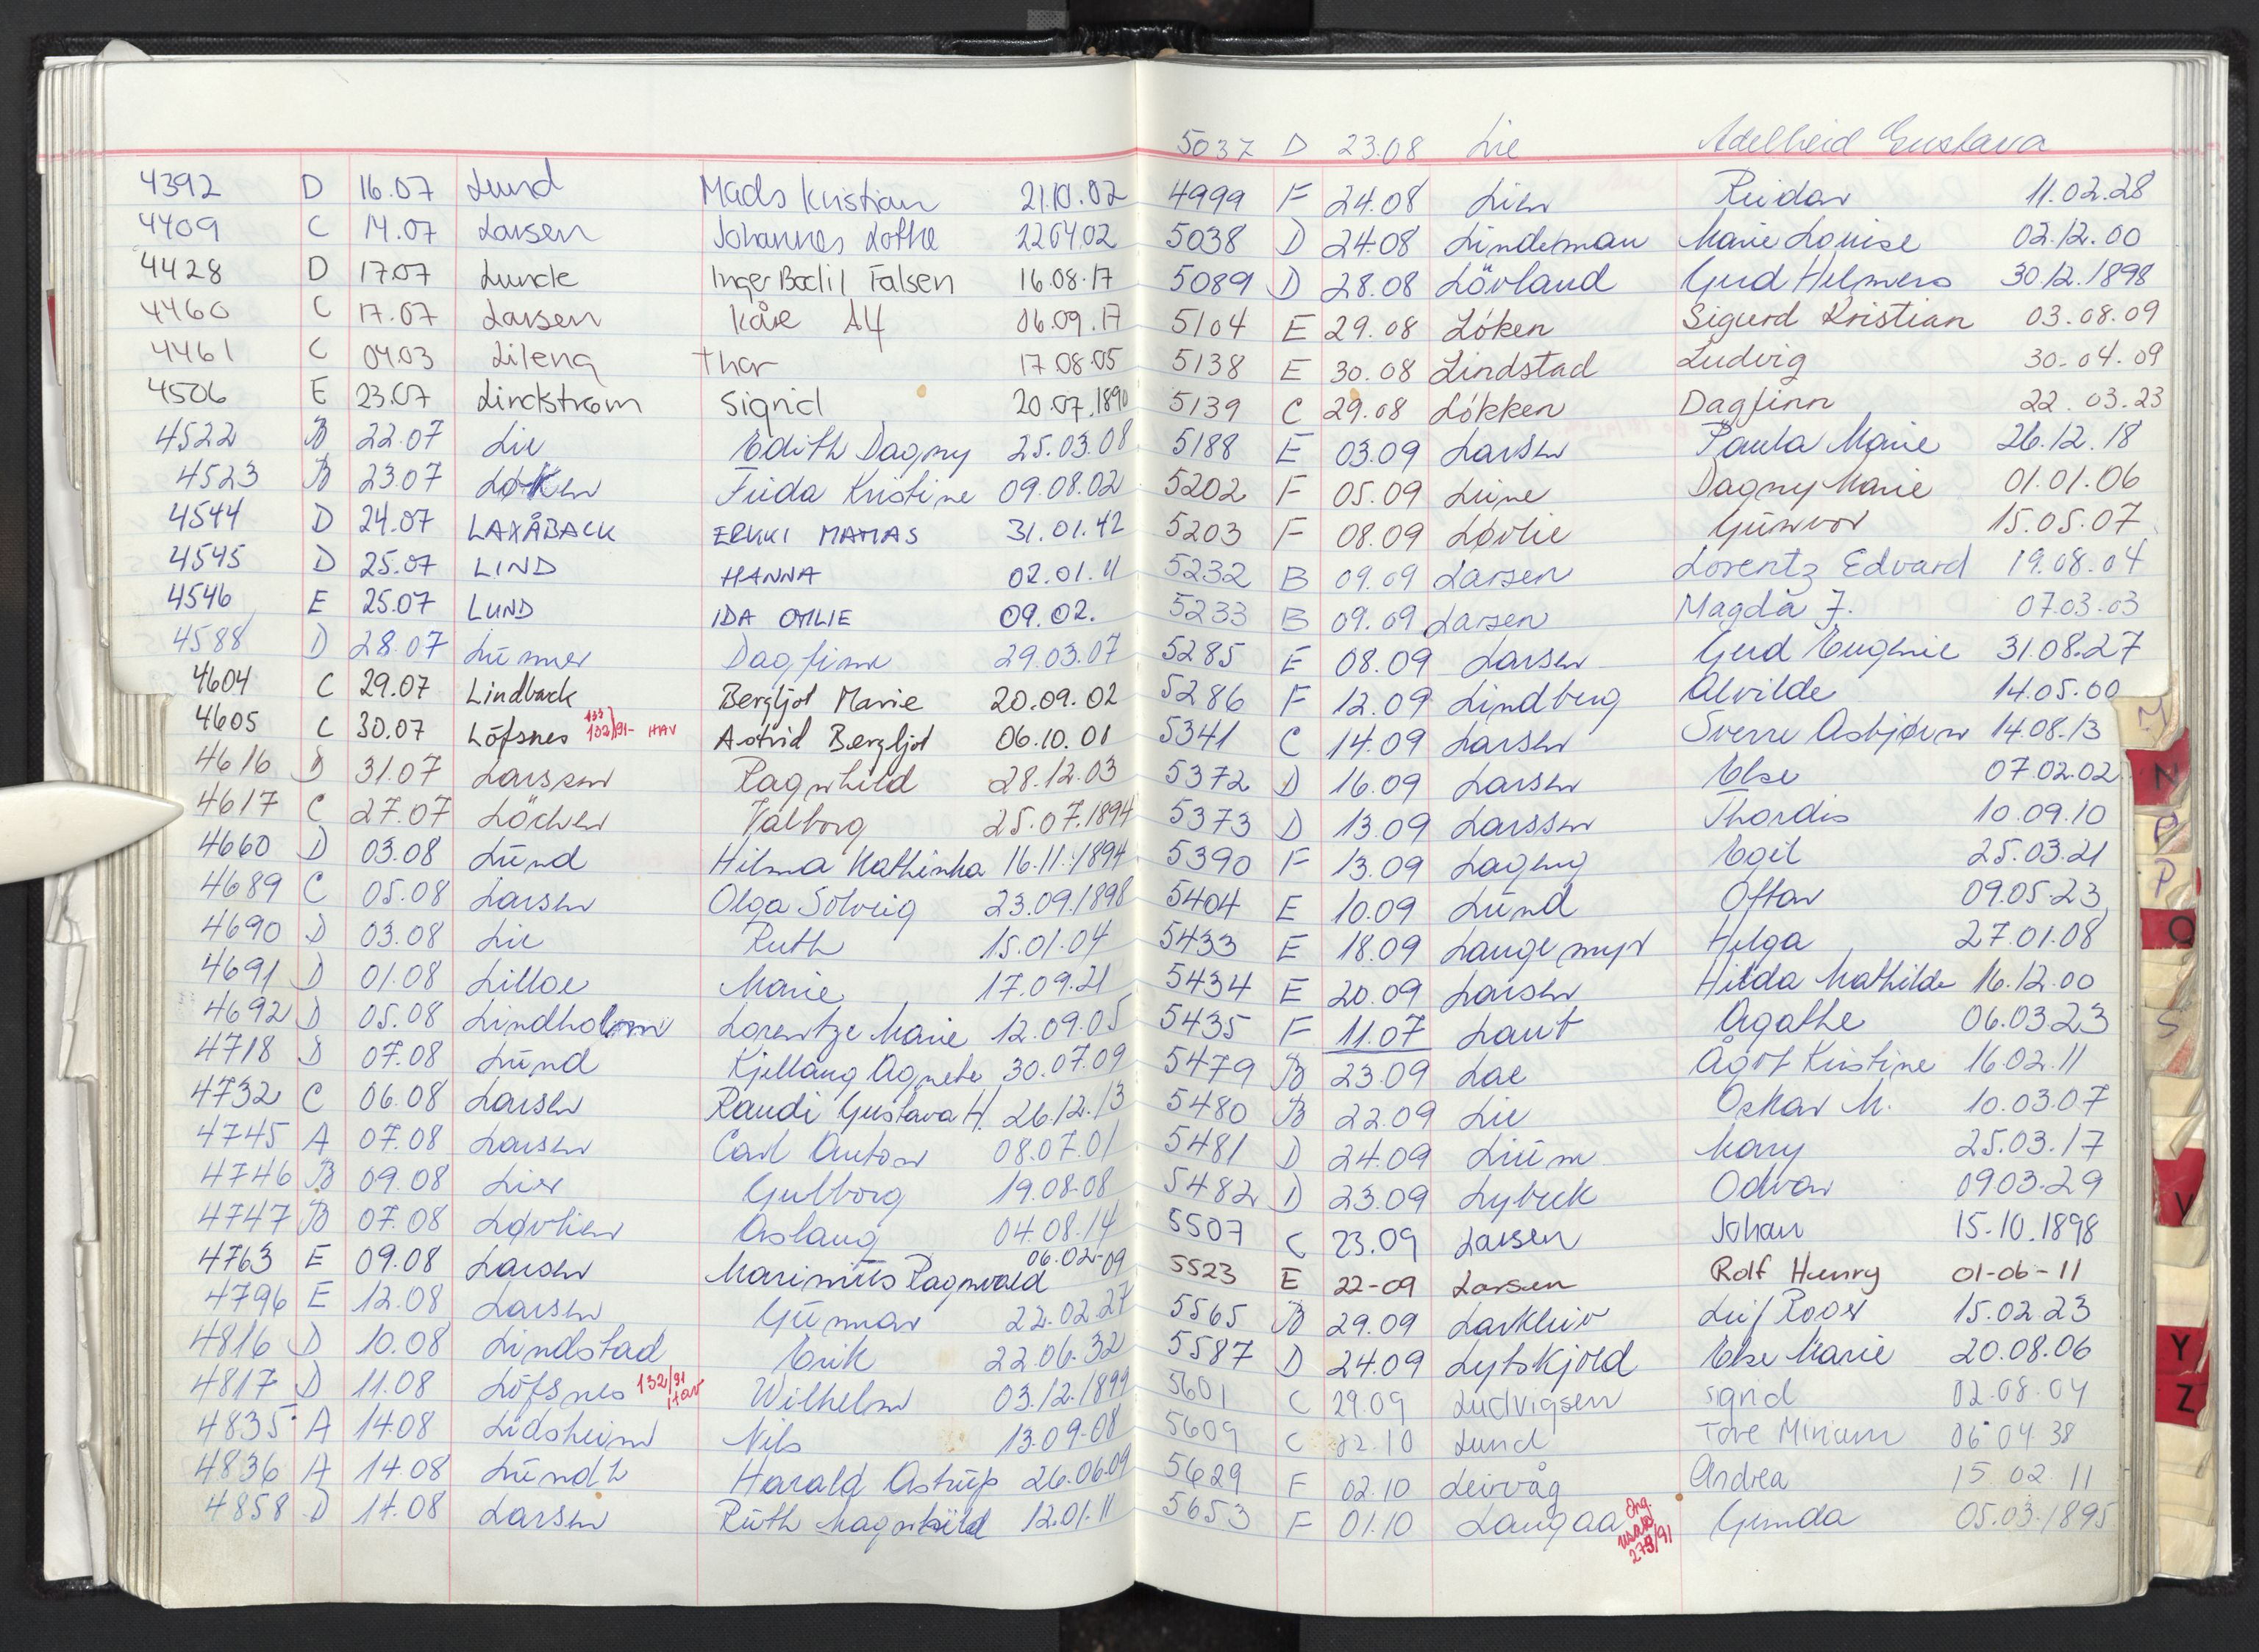 4392 D 16.07 Lund Mads Kristian 21.10.02
4409 C 14.07 Larsen Johannes Lothe 22.04.02
4428 D 17.07 Lunde Inger Bodil Falsen 16.08.17
4460 C 17.07 Larsen Kåre Alf 06.09.17
4461 C 04.03 Lileng Thor 17.08.05
4506 E 23.07 Lindstrøm Sigrid 20.07.1890
4522 B 22.07 Lie Edith Dagny 25.03.08
4523 B 23.07 Løken Frida Kristine 09.08.02
4544 D 24.07 LAXÅBACK ERKKI MATIAS 31.01.42
4545 D 25.07 LIND HANNA 02.01.11
4546 E 25.07 LUND IDA OTILIE 09.02.
4588 D 28.07 Dagfinn 29.03.07
4604 C 29.07 Lindback Bergljot Marie 20.09.02
4605 C 30.07 Löfsnes 133 132/91- HAV Astrid Bergljot 06.10.01
4616 D 31.07 Larssen Ragnhild 28.12.03
4617 C 27.07 Löchen Valborg 25.07.1894
4660 D 03.08 Lund Hilma Kathinka 16.11.1894
4689 C 05.08 Larsen Olga Solveig 23.09.1898
4690 D 03.08 Lie Ruth 15.01.04
4691 D 01.08 Lilloe Marie 17.09.21
4692 D 05.08 Lindholm Lorentze Marie 12.09.05
4718 D 07.08 Lund Kjellaug Agnete 30.07.09
4732 C 06.08 Larsen Randi Gustava H. 26.12.13
4745 A 07.08 Larsen Carl Anton 08.07.01
4746 B 09.08 Lier Gulborg 19.08.08
4747 B 07.08 Løvlien Aslaug 04.08.14
4763 E 09.08 Larsen Marinius Ragnvald 06.02-09
4796 E 12.08 Larsen Gunnar 22.02.27
4816 D 10.08 Lindstad Erik 22.06.32
4817 D 11.08 Löfsnes 132/91 Hav Wilhelm 03.12.1899
4835 A 14.08 Lidsheim Nils 13.09.08
4836 A 14.08 Lundh Harald Astrup 26.06.09
4858 D 14.08 Larsen Ruth Magnhild 12.01.11
5037 D 23.08 Lie Adelheid Gustava
4999 F 24.08 Lien Reidar 11.02.28
5038 D 24.08 Lindeman Marie Louise 02.12.00
5089 D 28.08 Lövland Gerd Helmers 30.12.1898
5104 E 29.08 Löken Sigurd Kristian 03.08.09
5138 E 30.08 Lindstad Ludvig 30.04.09
5139 C 29.08 Løkken Dagfinn 22.03.23
5188 E 03.09 Larsen Paula Marie 26.12.18
5202 F 05.09 Leine Dagny Marie 01.01.06
5203 F 08.09 Løvlie Gunvor 15.05.07
5232 B 09.09 Larsen Lorentz Edvard 19.08.04
5233 B 09.09 Larsen Magda J. 07.03.03
5285 E 08.09 Larsen Gerd Eugenie 31.08.27
5286 F 12.09 Lindberg Alvilde 14.05.00
5341 C 14.09 Larsen Sverre Asbjørn 14.08.13
5372 D 16.09 Larsen Else 07.02.02
5373 D 13.09 Larssen Thordis 10.09.10
5390 F 13.09 Lageng Egil 25.03.21
5404 E 10.09 Lund Ottar 09.05.23
5433 E 18.09 Langemyr Helga 27.01.08
5434 E 20.09 Larsen Hilda Mathilde 16.12.00
5435 F 11.07 Laut Agathe 06.03.23
5479 B 23.09 Lae Ågot Kristine 16.02.11
5480 B 22.09 Lie Oskar M. 10.03.07
5481 D 24.09 Lium Mary 25.03.17
5482 D 23.09 Lybeck Odvar 09.03.29
5507 C 23.09 Larsen Johan 15.10.1898
5523 E 22-09 Larsen Rolf Henry 01-06-11
5565 B 29.09 Larkleiv Leif Roar 15.02.23
5587 D 24.09 Lytskjold Else Marie 20.08.06
5601 C 29.09 Ludvigsen Sigrid 02.08.04
5609 C 02.10 Lund Tove Miriam 06.04.38
5629 F 02.10 Leirvåg Andrea 15.02.11
5653 F 01.10 Langaa Org. 279/91 Gunda 05.03.1895
N
P
P
Q
S
V
Y
Z